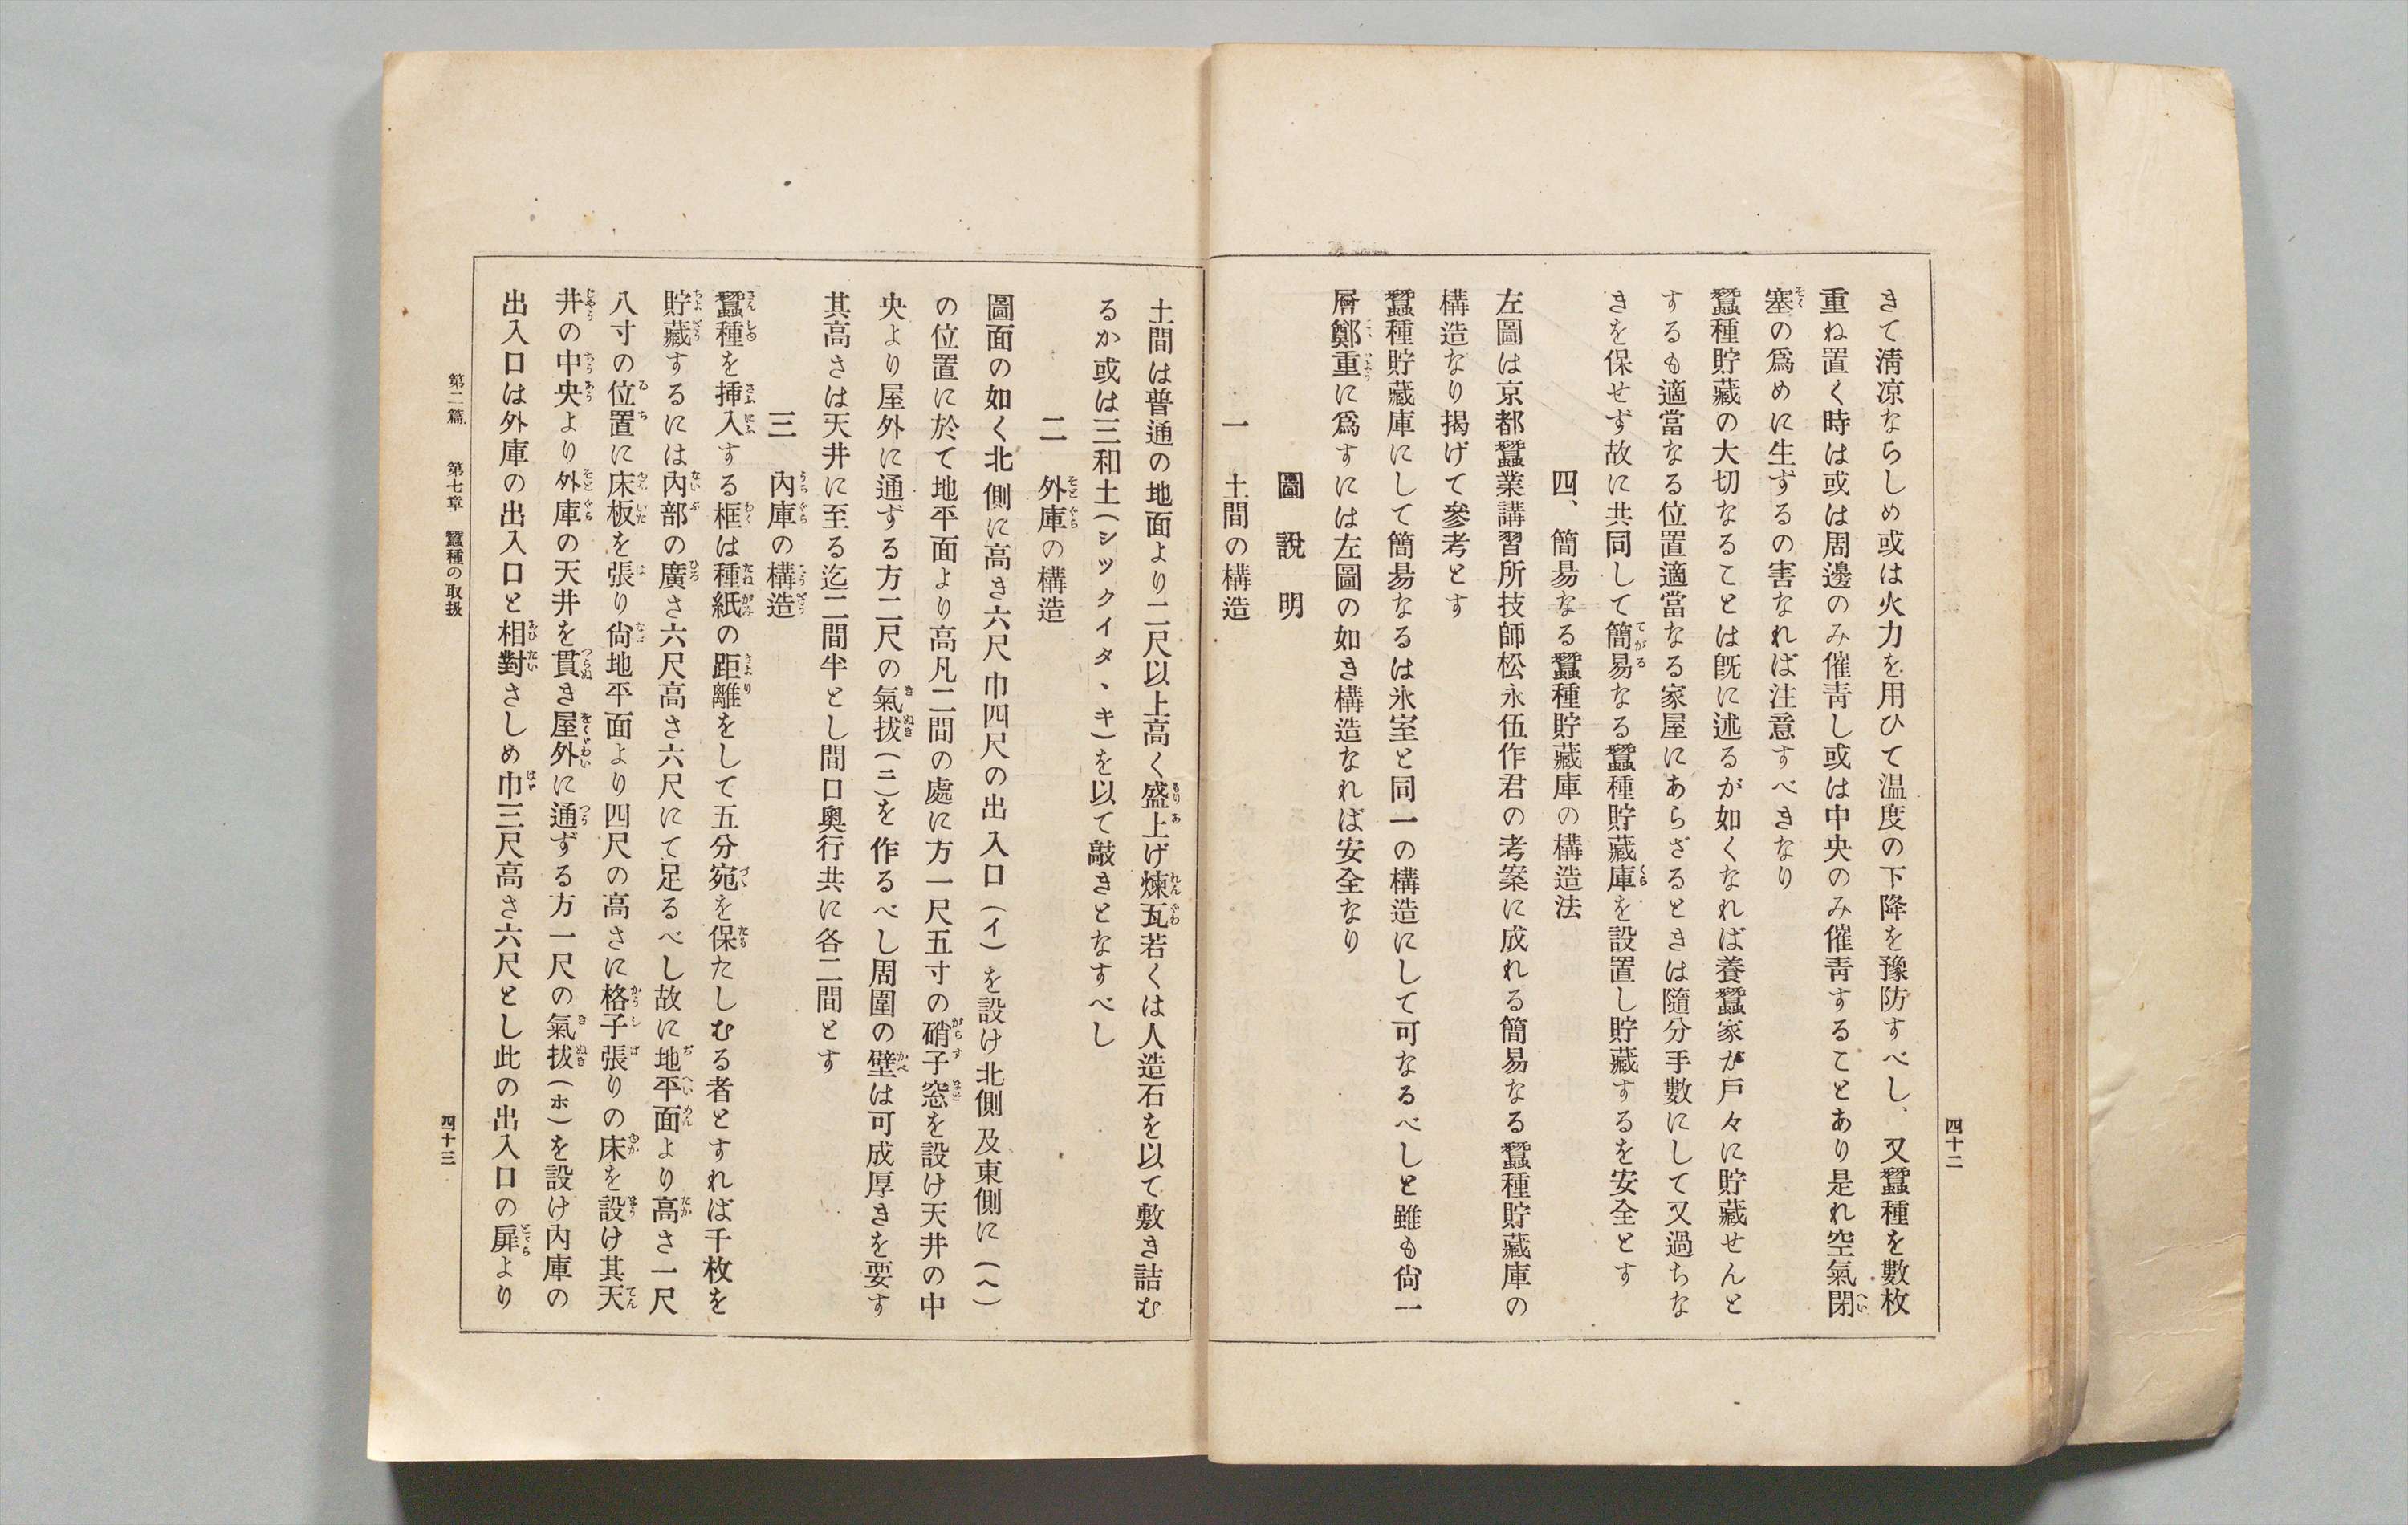 四十二
きて淸凉ならしめ或は火力を用ひて温度の下降を豫防すべし、又蠶種を數枚
重ね置く時は或は周邊のみ催靑し或は中央のみ催靑することあり是れ空氣閉
塞の爲めに生ずるの害なれば注意すべきなり
蠶種貯藏の大切なることは旣に述るが如くなれば養蠶家が戸々に貯藏せんと
するも適當なる位置適當なる家屋にあらざるときは隨分手數にして又過ちな
きを保せず故に共同して簡易なる蠶種貯藏庫を設置し貯藏するを安全とす
四、簡易なる蠶種貯藏庫の構造法
左圖は京都蠶業講習所技師松永伍作君の考案に成れる簡易なる蠶種貯藏庫の
構造なり揭げて參考とす
蠶種貯藏庫にして簡易なるは氷室と同一の構造にして可なるべしと雖も尙一
層鄭重に爲すには左圖の如き構造なれば安全なり
圖說明
一　土間の構造
土間は普通の地面より二尺以上高く盛上げ煉瓦若くは人造石を以て敷き詰む
るか或は三和土(シックイタヽキ)を以て敲きとなすべし
二　外庫の構造
圖面の如く北側に高き六尺巾四尺の出入口(イ)を設け北側及東側に(ヘ)
の位置に於て地平面より高凡二間の處に方一尺五寸の硝子窓を設け天井の中
央より屋外に通ずる方二尺の氣拔(ニ)を作るべし周圍の壁は可成厚きを要す
其高さは天井に至る迄二間半とし間口奧行共に各二間とす
三　內庫の構造
蠶種を挿入する框は種紙の距離をして五分宛を保たしむる者とすれば千枚を
貯藏するには內部の廣さ六尺高さ六尺にて足るべし故に地平面より高さ一尺
八寸の位置に床板を張り尙地平面より四尺の高さに格子張りの床を設け其天
井の中央より外庫の天井を貫き屋外に通ずる方一尺の氣拔(ホ)を設け內庫の
出入口は外庫の出入口と相對さしめ巾三尺高さ六尺とし此の出入口の扉より
第二篇　第七章　蠶種の取扱
四十三